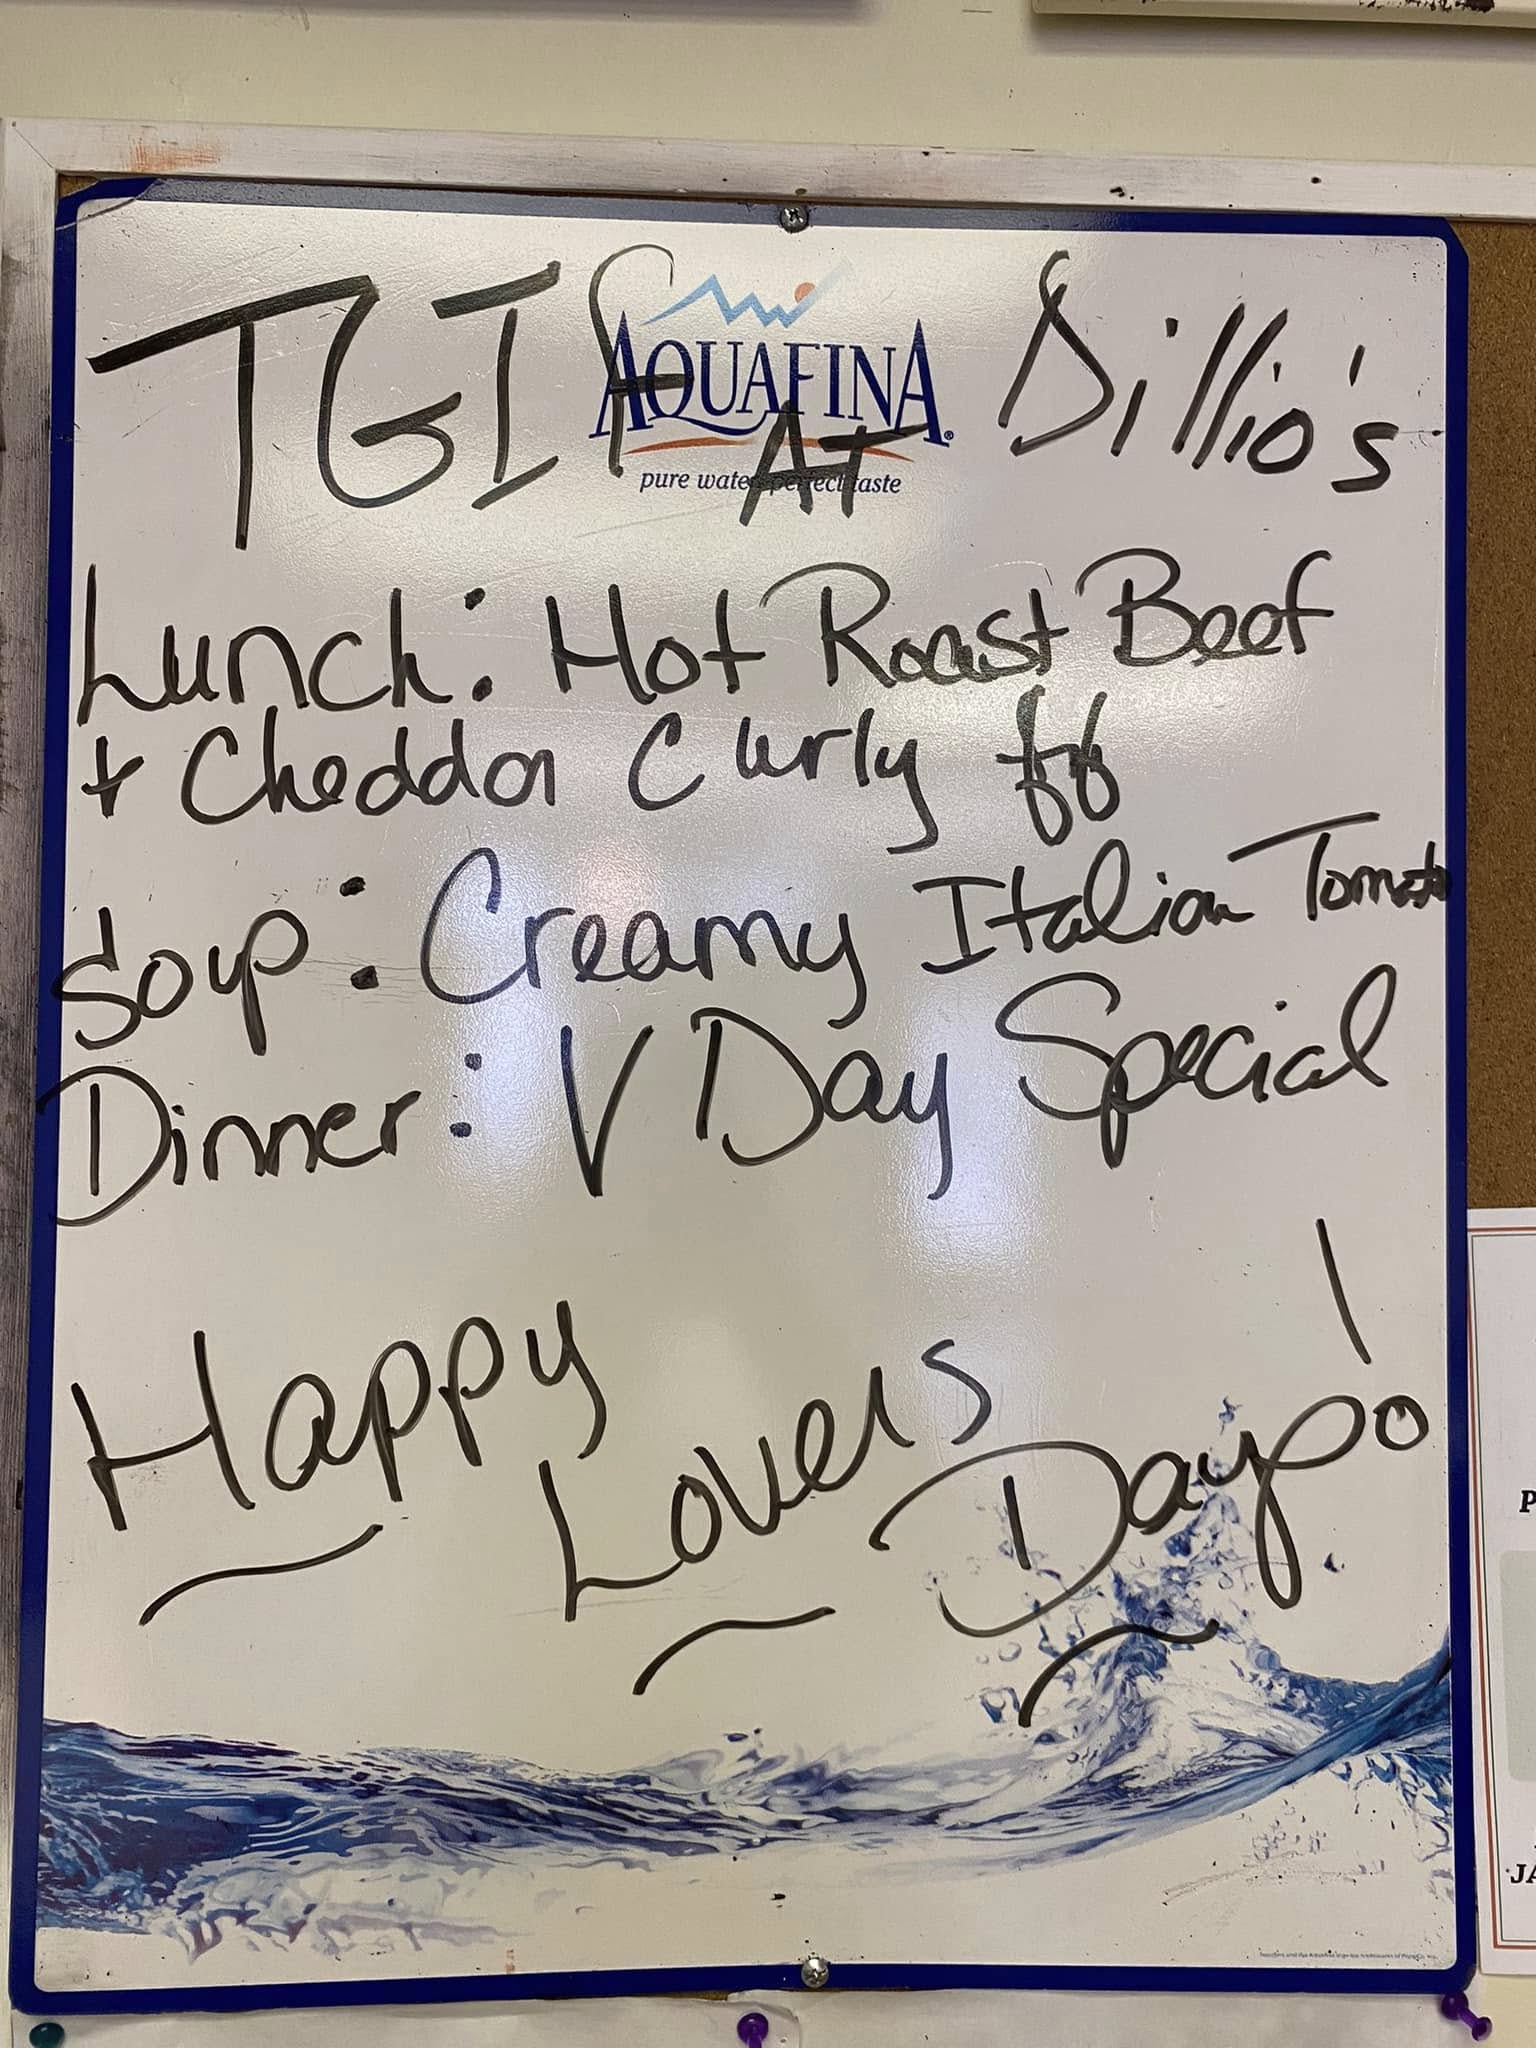 TGIF AT Dillio's
AQUAFINA
pure water perfect taste
Lunch: Hot Roast Beef
+ Cheddar Curly ff
Soup: Creamy Italian Tomato
Dinner: V Day Special
Happy Lovers Day!
P
JA